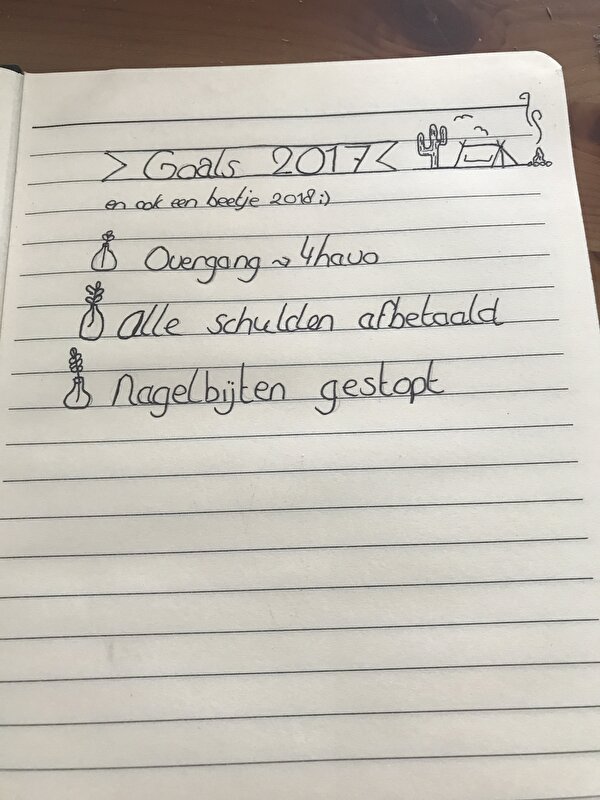 > Goals 2017 <
en ook een beetje 2018 :)
Overgang → 4havo
Alle schulden afbetaald
Nagelbijten gestopt